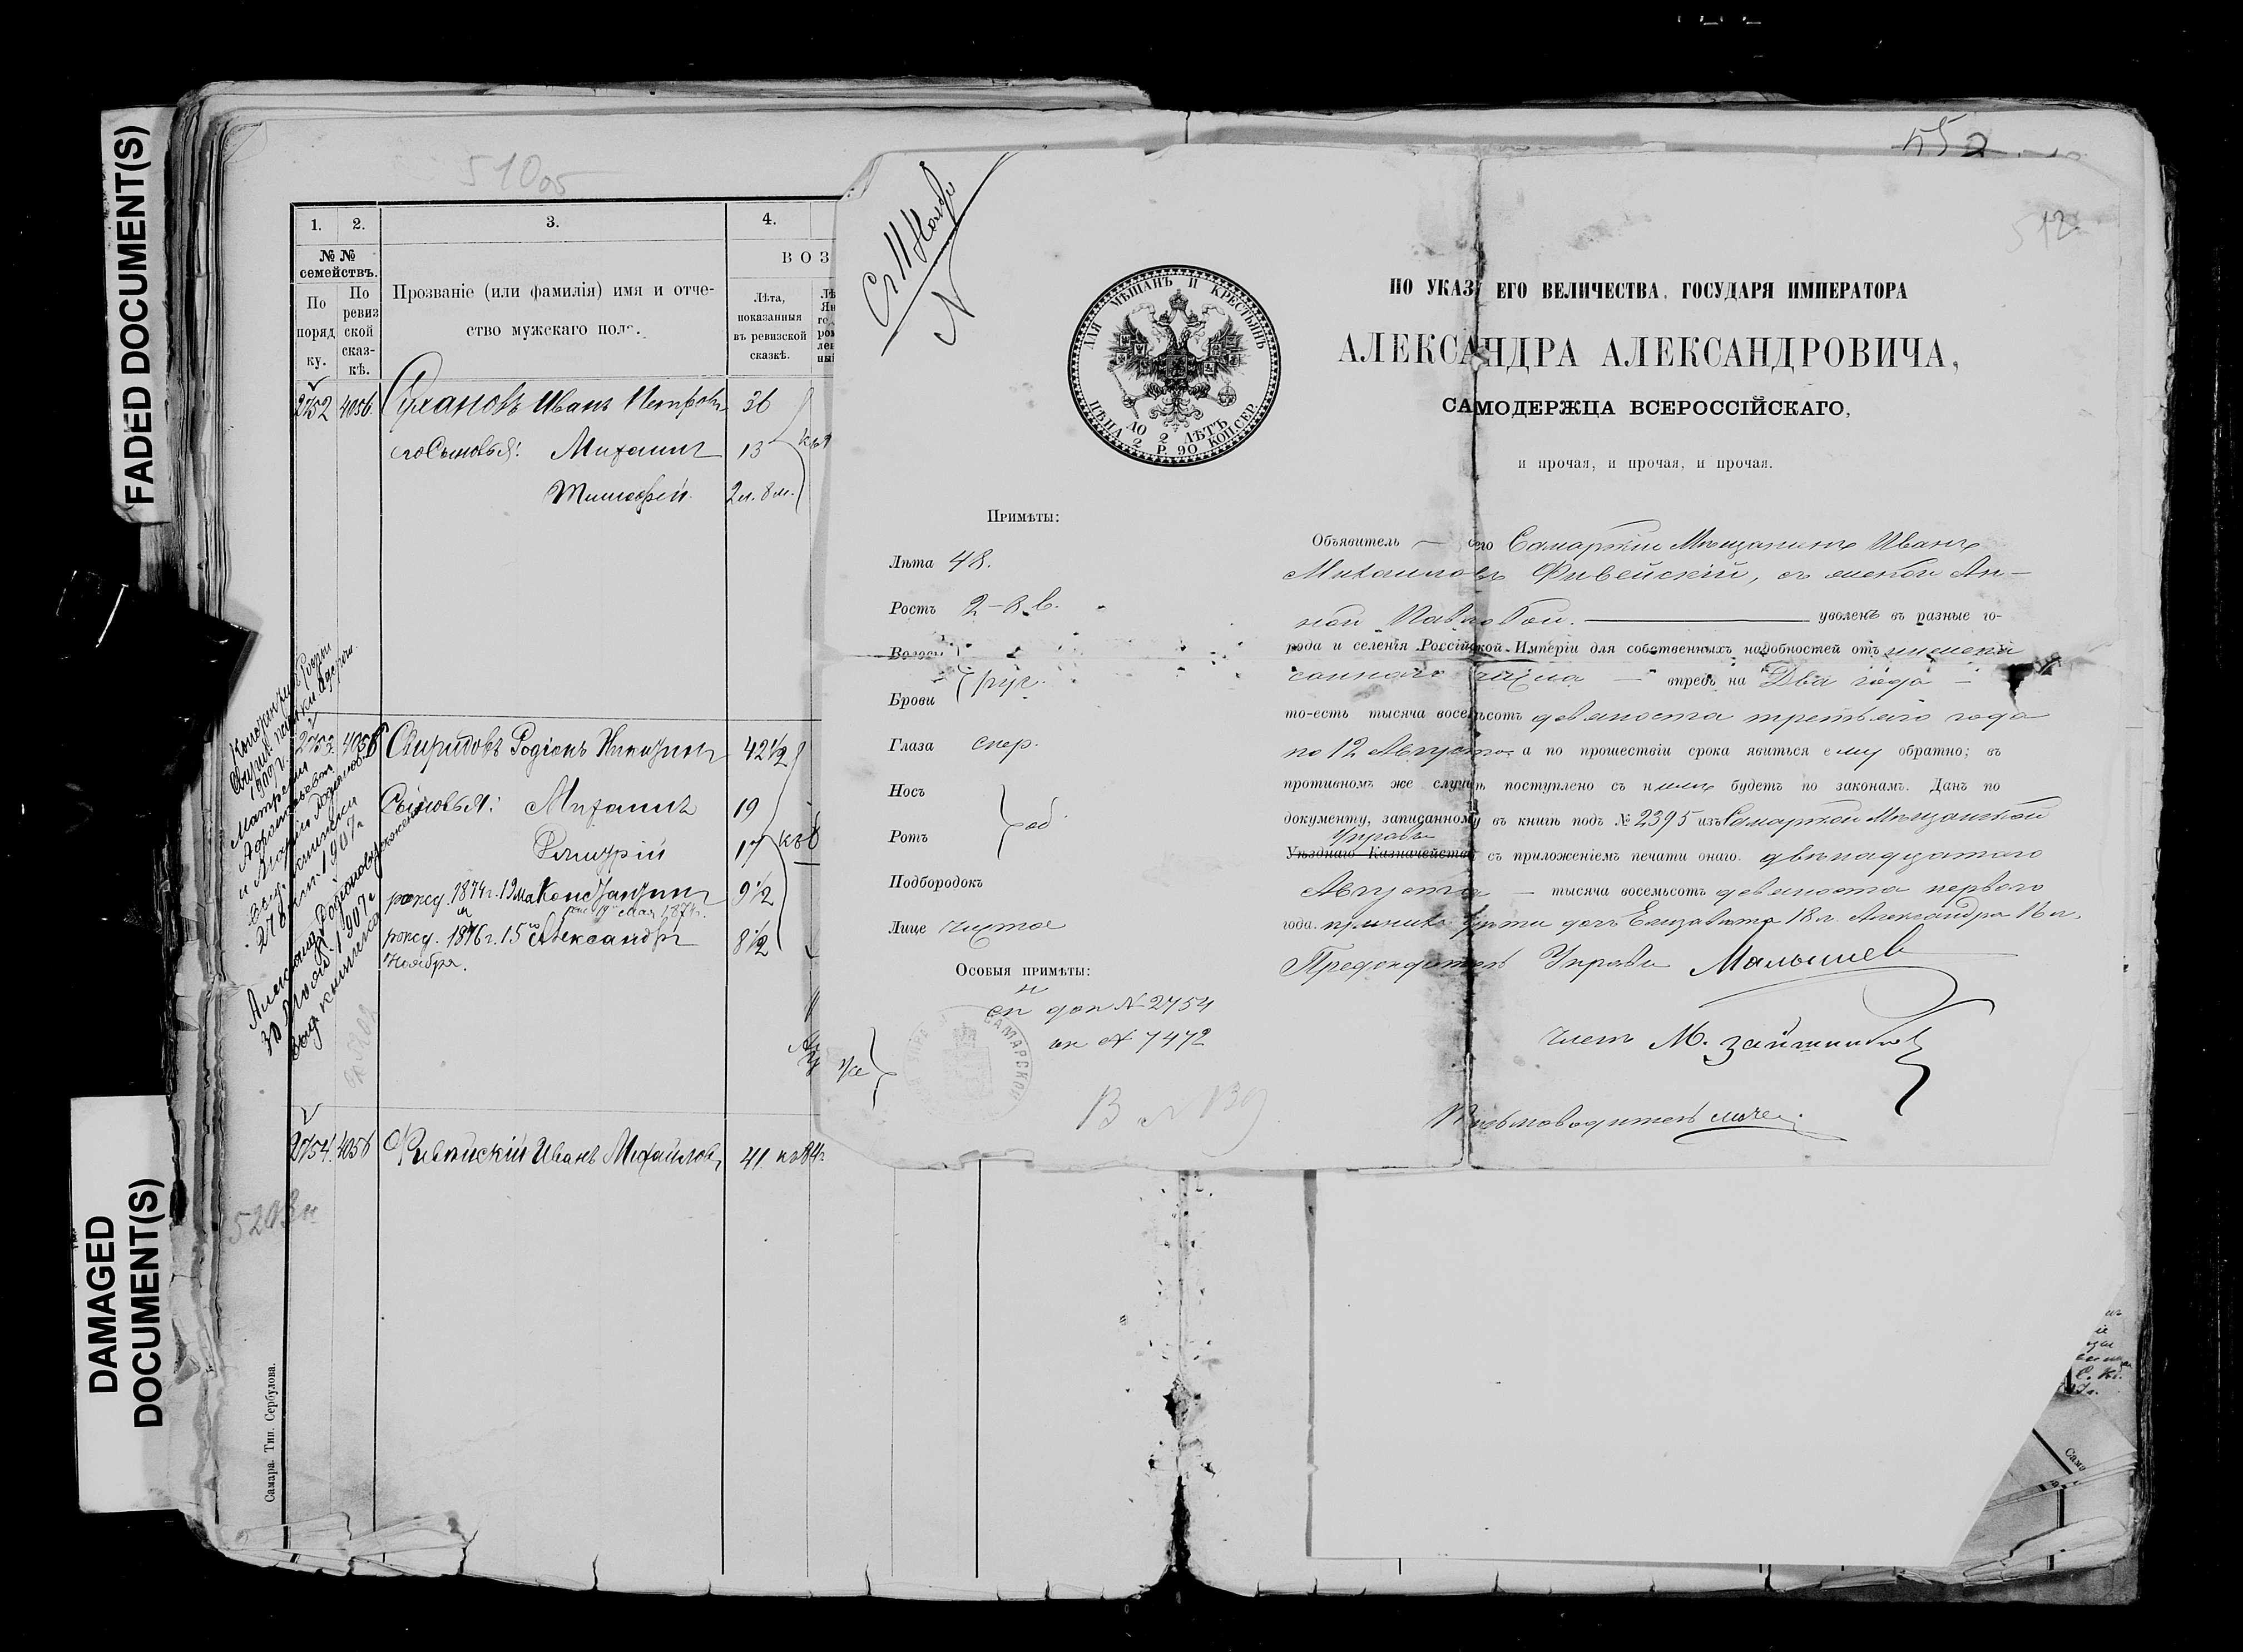 FADED DOCUMENT(S)
DAMAGED
DOCUMENT(S)
1.
2.
3.
4.
№ №
семействъ.
По
поряд
ку.
По
ревиз
ской
сказ-
кѣ.
Прозваніе (или фамилія) имя и отче-
ство мужскаго пола.
ВОЗ
Лѣта,
показанныя
въ ревизской
сказкѣ.
2752 4056 Сухановъ Иванъ Петровъ 36
его Сыновья: Михаилъ 13
Тимофей 2 л. 8 м.
2753 4056 Свиридовъ Родіонъ Никитинъ 42 1/2
Сыновья: Михаилъ 19
Дмитрій 17
рожд. 1874 г. 19 мая Константинъ 9 1/2
рожд. 1876 г. 15 Александръ 8 1/2
Ноября.
2754 4056 Фивейскій Иванъ Михайловъ 41
Самара. Тип. Сербулова.
552
512
ДЛЯ МѢЩАНЪ И КРЕСТЬЯНЪ
ДО 2 ЛѢТЪ
ЦѢНА 2 Р. 90 КОП. СЕР.
ПО УКАЗУ ЕГО ВЕЛИЧЕСТВА, ГОСУДАРЯ ИМПЕРАТОРА
АЛЕКСАНДРА АЛЕКСАНДРОВИЧА,
САМОДЕРЖЦА ВСЕРОССІЙСКАГО,
и прочая, и прочая, и прочая.
Примѣты:
Лѣта 48.
Ростъ 2-
Волосы
Брови рус.
Глаза сѣр.
Носъ
Ротъ
Подбородокъ
Лице чистое
Особыя примѣты:
доп № 2754
№ 7472
САМАРСКОЙ
В № 139
Объявитель сего Самарскій Мѣщанинъ Иванъ
Михаиловъ Фивейскій, съ женой Ан-
ной Павловой. уволенъ въ разные го-
рода и селенія Россійской Имперіи для собственныхъ надобностей отъ нижепи
саннаго числа впредь на Два года
то-есть тысяча восемьсотъ девяноста третьяго года
по 12 Августа а по прошествіи срока явиться ему обратно; въ
противномъ же случаѣ поступлено съ нимъ будетъ по законамъ. Данъ по
документу, записанному въ книгѣ подъ № 2395 изъ Самарской Мѣщанской
Управы
Уѣзднаго Казначейства съ приложеніемъ печати онаго. двѣнадцатаго
Августа тысяча восемьсотъ девяноста перваго
года. при нихъ дѣти дочь Елизавета 18 л. Александра 16 л.
Предсѣдатель Управы Малышев
Членъ М.
Письмоводитель